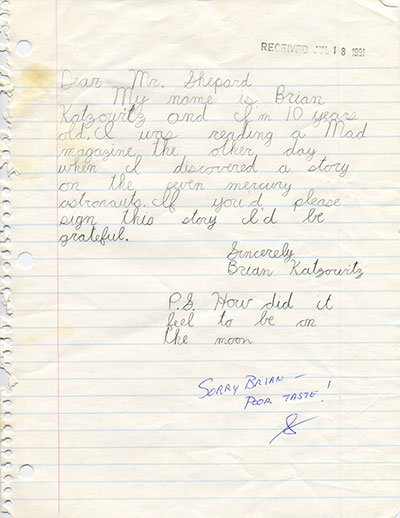 RECEIVED JUL 18 1991
Dear Mr. Shepard
My name is Brian
Katzowitz and I'm 10 years
old. I was reading a Mad
magazine the other day
when I discovered a story
on the seven mercury
astronauts. If you'd please
sign this story I'd be
grateful.
Sincerely
Brian Katzowitz
P.S. How did it
feel to be on
the moon
SORRY BRIAN —
POOR TASTE!
S